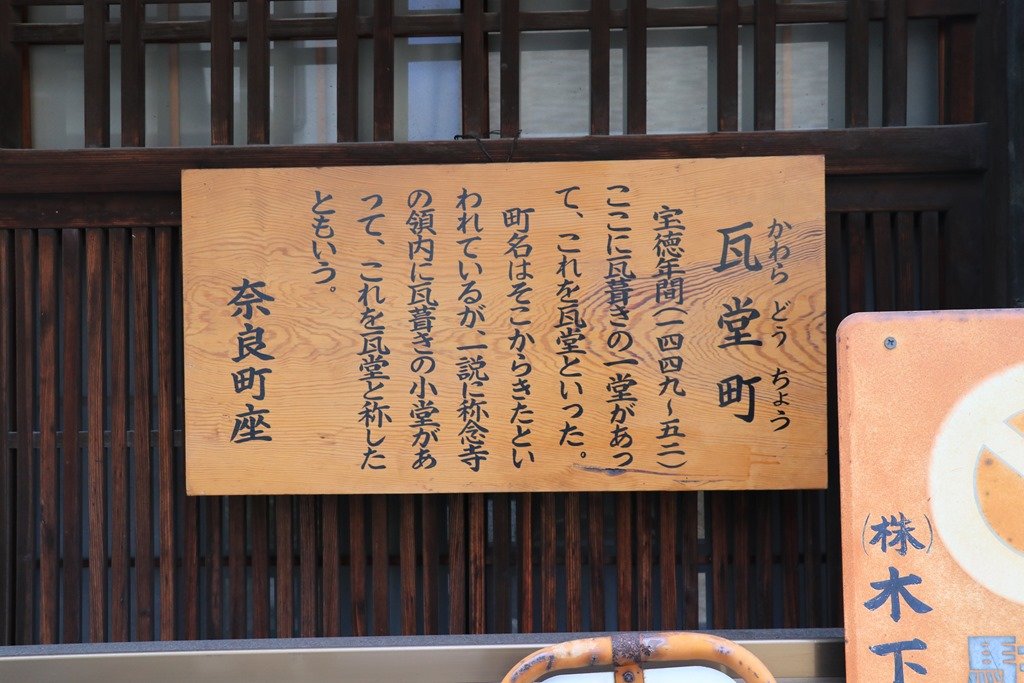 かわら どう ちょう
瓦堂町
宝徳年間(一四四九〜五二)
ここに瓦葺きの一堂があっ
て、これを瓦堂といった。
町名はそこからきたとい
われているが、一説に称念寺
の領内に瓦葺きの小堂があ
って、これを瓦堂と称した
ともいう。
奈良町座
(株)木下